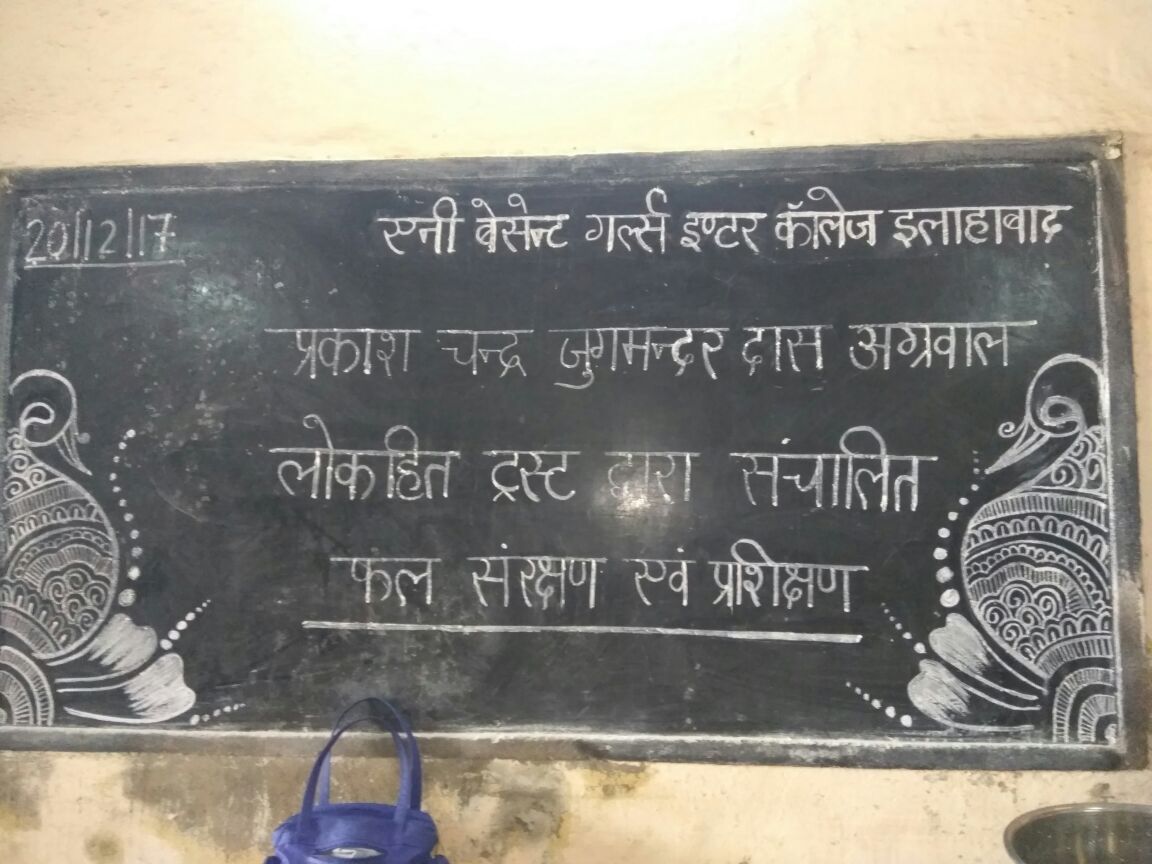 20/12/17
एनी वेसेन्ट गर्ल्स इण्टर कॉलेज इलाहाबाद
प्रकाश चन्द्र जुगमन्दर दास अग्रवाल
लोकहित ट्रस्ट द्वारा संचालित
फल संरक्षण एवं प्रशिक्षण